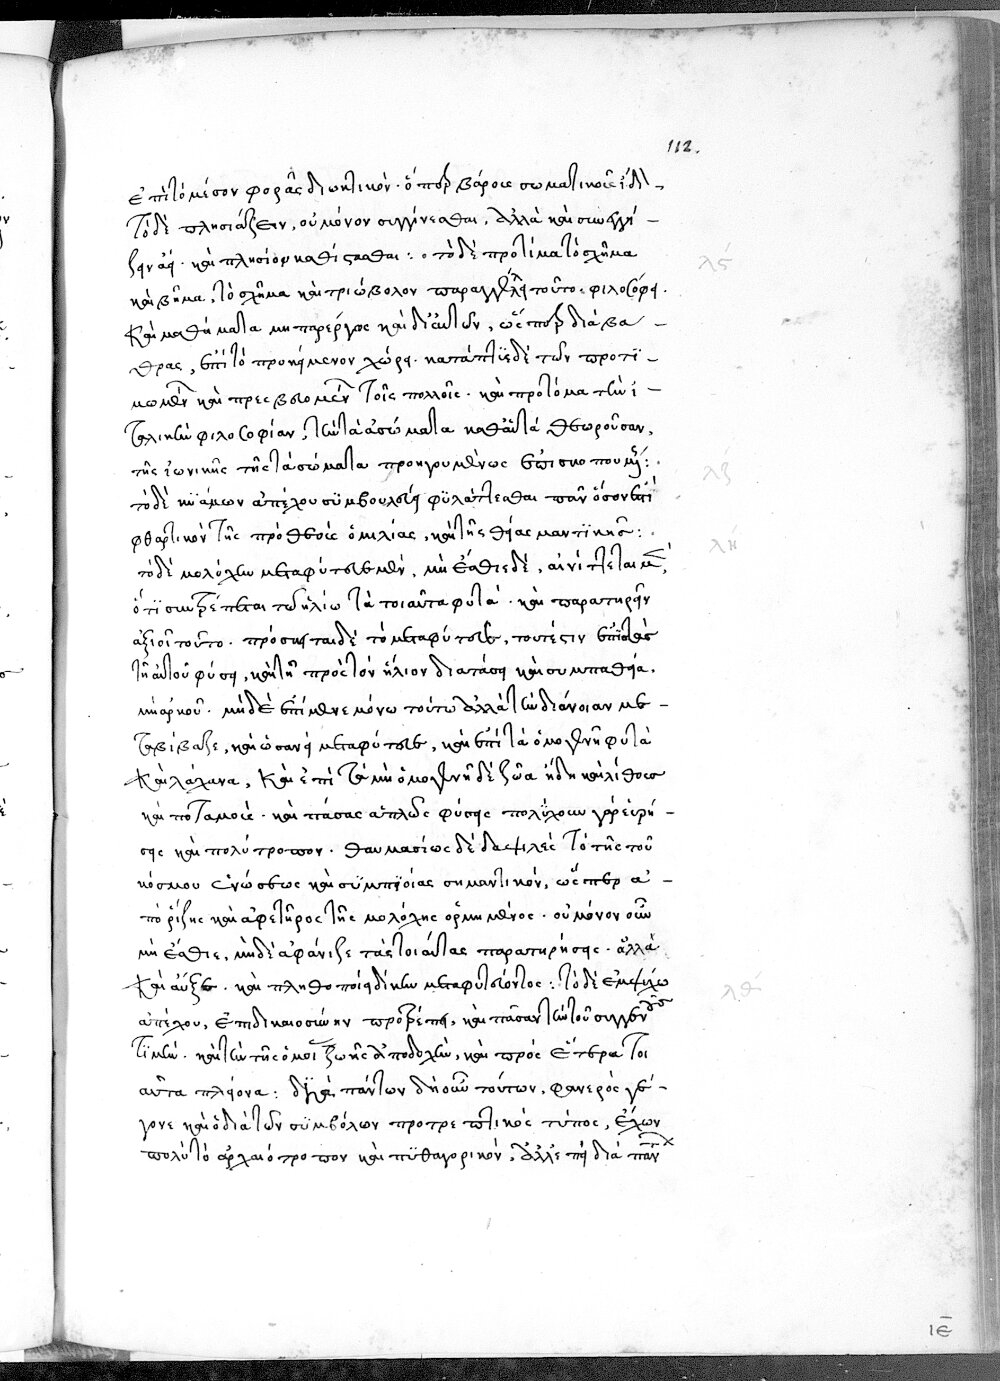 112.
ἐπὶ τὸ μέσον φορᾶς διωστικὸν· ὅπερ βάρος σωματικοῖς ἐδί-
Τὸ δὲ πλησιάζειν, οὐ μόνον συγγίνεσθαι, ἀλλὰ καὶ συνεγγί-
ζειν ἀεί· καὶ πλησίον καθίστασθαι: τὸ δὲ προτίμα τὸ σχῆμα
λς
καὶ βῆμα, τὸ σχῆμα καὶ τριώβολον παραγγέλλει τοῦτο· φιλοσόφει.
καὶ μαθήματα μὴ παρέργως καὶ δι' αὐτῶν, ὥσπερ διὰ βά-
θρας, ἐπὶ τὸ προκείμενον χώρει· κατάπτυε δὲ τῶν προτι-
μωμένων καὶ πρεσβευομένων τοῖς πολλοῖς· καὶ προτίμα τὴν ἰ-
ταλικὴν φιλοσοφίαν, τὴν τὰ ἀσώματα καθ' αὑτὰ θεωροῦσαν,
τῆς ἰωνικῆς τῆς τὰ σώματα προηγουμένως ἐπισκοπουμένης:
λζ
τὸ δὲ κυάμων ἀπέχου συμβουλεύει φυλάττεσθαι πᾶν ὅσον ἐπὶ
φθαρτικὸν τῆς πρὸς θεοὺς ὁμιλίας, καὶ τῆς θείας μαντικῆς:
λη
τὸ δὲ μολόχην μεταφύτευε μέν, μὴ ἔσθιε δὲ, αἰνίττεται μὲν,
ὅτι συντρέπεται τῷ ἡλίῳ τὰ τοιαῦτα φυτά· καὶ παρατηρεῖν
ἀξιοῖ τοῦτο· πρόσκειται δὲ τὸ μεταφύτευε, τουτέστιν ἐπιστὰς
τῇ αὐτοῦ φύσει, καὶ τῇ πρὸς τὸν ἥλιον διατάσει καὶ συμπαθείᾳ,
μὴ ἀρκοῦ· μὴ δὲ ἐπίμενε μόνῳ τούτῳ ἀλλὰ τὴν διάνοιαν με-
ταβίβαζε, καὶ ὡσανεὶ μεταφύτευε, καὶ ἐπὶ τὰ ὁμογενῆ φυτὰ
καὶ λάχανα, καὶ ἐπὶ τὰ μὴ ὁμογενῆ δὲ ζῷα ἤδη καὶ λίθους
καὶ ποταμοὺς· καὶ πάσας ἁπλῶς φύσεις πολύχουν γὰρ εὑρή-
σεις καὶ πολύτροπον· θαυμασίως δὲ δαψιλὲς τὸ τῆς τοῦ
κόσμου ἑνώσεως καὶ συμπνοίας σημαντικόν, ὥσπερ ἀ-
πὸ ῥίζης καὶ ἀφετῆρος τῆς μολόχης ὁρμώμενος· οὐ μόνον οὖν
μὴ ἔσθιε, μηδὲ ἀφάνιζε τὰς τοιαύτας παρατηρήσεις· ἀλλὰ
καὶ αὖξε· καὶ πληθοποίει δίκην μεταφυτεύοντος: τὸ δὲ ἐμψύχων
λθ
ἀπέχου, ἐπὶ δικαιοσύνην προτρέπει, καὶ πᾶσαν τὴν τοῦ συγγενοῦς
τιμήν· καὶ τὴν τῆς ὁμοίας ζωῆς ἀποδοχήν, καὶ πρὸς ἕτερα τοι
αῦτα πλείονα: διὰ πάντων δὴ οὖν τούτων, φανερὸς γέ-
γονε καὶ ὁ διὰ τῶν συμβόλων προτρεπτικὸς τύπος, ἔχων
πολὺ τὸ ἀρχαιότροπον καὶ πυθαγορικόν, ἀλλ' ἐπεὶ διὰ πάντων
ιε